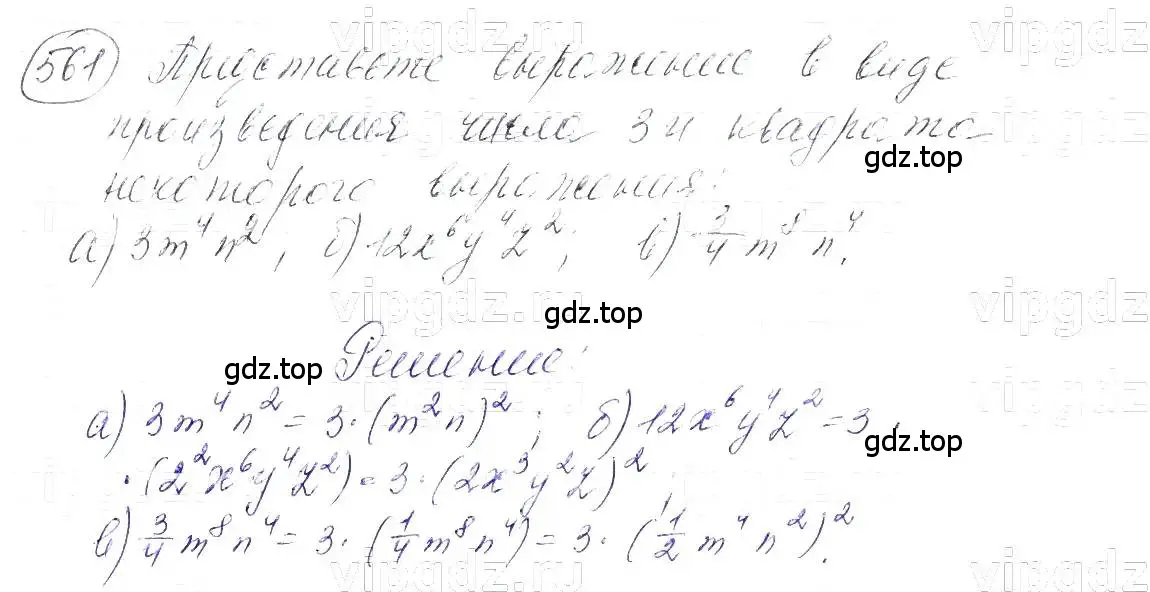 561 Представьте выражение в виде
произведения числа 3 и квадрата
некоторого выражения:
а) 3m⁴n²; б) 12x⁶y⁴z²; в) 3/4 m⁸n⁴.
Решение:
а) 3m⁴n² = 3·(m²n)²; б) 12x⁶y⁴z² = 3·
·(2²x⁶y⁴z²) = 3·(2x³y²z)²;
в) 3/4 m⁸n⁴ = 3·(1/4 m⁸n⁴) = 3·(1/2 m⁴n²)².
vipgdz.ru
gdz.top